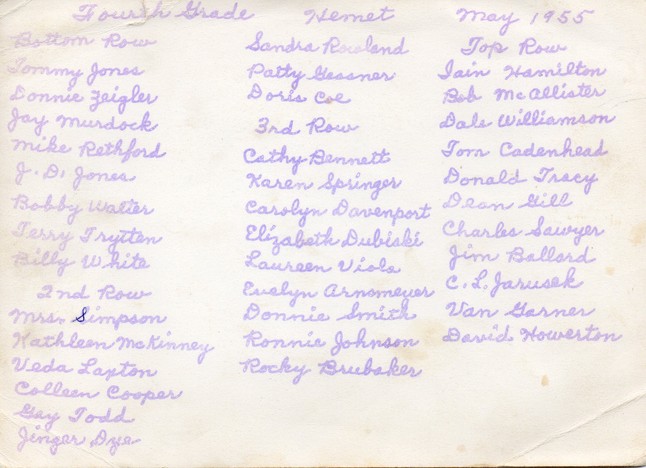 Fourth Grade Hemet May 1955
Bottom Row
Tommy Jones
Donnie Zeigler
Jay Murdock
Mike Rethford
J. D. Jones
Bobby Walter
Terry Trytten
Billy White
2nd Row
Mrs. Simpson
Kathleen McKinney
Veda Laxton
Colleen Cooper
Gay Todd
Jinger Dye
Sandra Rowland
Patty Gessner
Doris Coe
3rd Row
Cathy Bennett
Karen Springer
Carolyn Davenport
Elizabeth Dubiski
Laureen Viola
Evelyn Arnomeyer
Donnie Smith
Ronnie Johnson
Rocky Brubaker
Top Row
Iain Hamilton
Bob McAllister
Dale Williamson
Tom Cadenhead
Donald Tracy
Dean Gill
Charles Sawyer
Jim Ballord
C. L. Jarusek
Van Garner
David Howerton